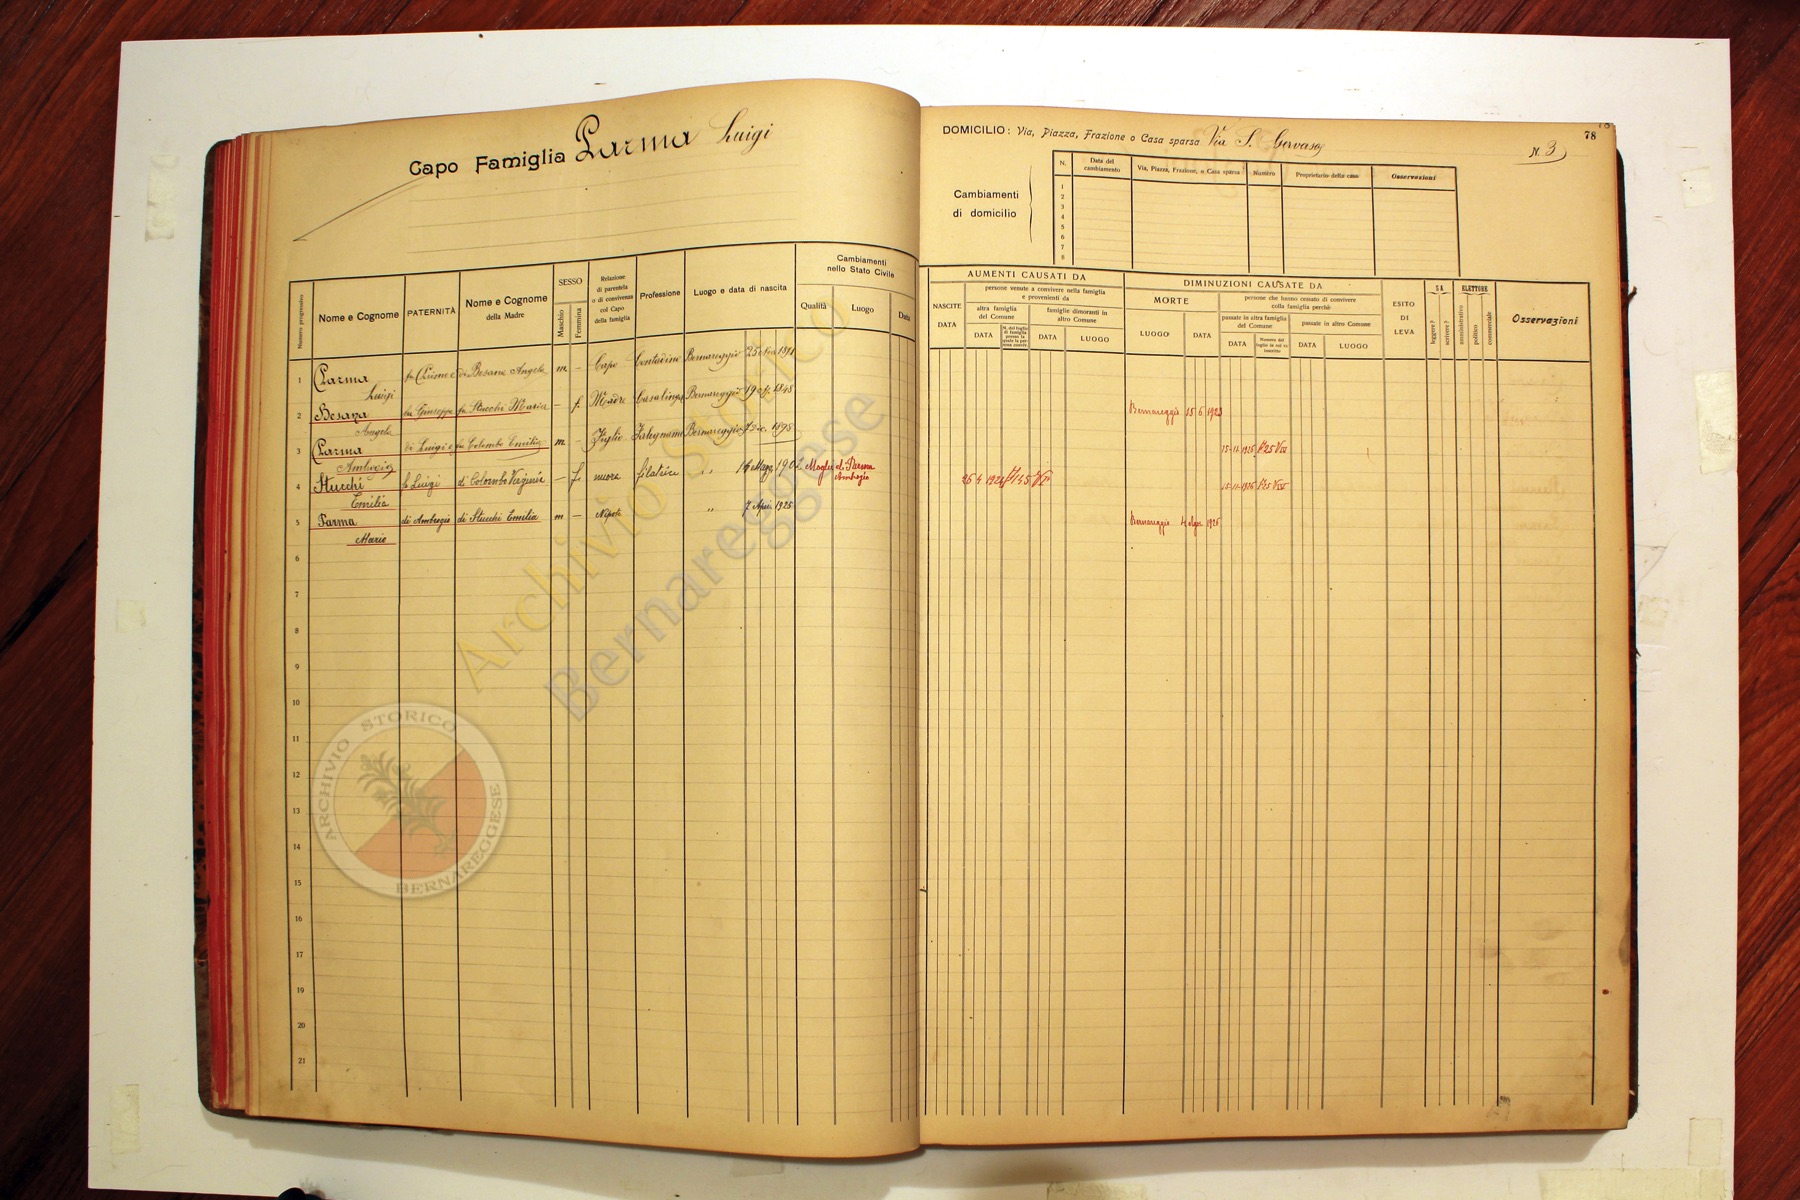 Capo Famiglia Parma Luigi
DOMICILIO: Via, Piazza, Frazione o Casa sparsa Via S. Gervaso
78
N. 3
Cambiamenti
di domicilio
N.
Data del
cambiamento
Via, Piazza, Frazione, o Casa sparsa
Numero
Proprietario della casa
Osservazioni
1
2
3
4
5
6
7
8
Numero progressivo
Nome e Cognome
PATERNITÀ
Nome e Cognome
della Madre
SESSO
Maschio
Femmina
Relazione
di parentela
o di convivenza
col Capo
della famiglia
Professione
Luogo e data di nascita
Cambiamenti
nello Stato Civile
Qualità
Luogo
Data
AUMENTI CAUSATI DA
NASCITE
DATA
persone venute a convivere nella famiglia
e provenienti da
altra famiglia
del Comune
famiglie dimoranti in
altro Comune
DATA
N. del foglio
di famiglia
DATA
LUOGO
DIMINUZIONI CAUSATE DA
MORTE
LUOGO
DATA
persone che hanno cessato di convivere
colla famiglia perchè
passate in altra famiglia
del Comune
passate in altro Comune
DATA
Numero del
foglio in cui va
inscritto
DATA
LUOGO
ESITO
DI
LEVA
SA
leggere?
scrivere?
ELETTORE
amministrativo
politico
commerciale
Osservazioni
1 Parma Luigi di Besana Angela m - Capo Contadino Bernareggio 25 1871
2 Besana Angela fu Giuseppe fu Stucchi Maria - f. Madre Casalinga Bernareggio 19 1848 Bernareggio 15 6 1923
3 Parma Ambrogio di Luigi fu Colombo Emilia m - Figlio Falegname Bernareggio 7 1898 15-11-1926
4 Stucchi Emilia fu Luigi di Colombo Virginia - f. nuora filatrice " 16 Magg. 1902 Moglie di Parma Ambrogio 26 4 1924 15-11-1926
5 Parma Mario di Ambrogio di Stucchi Emilia m - Nipote " 7 Apri. 1925 Bernareggio 4 1925
6
7
8
9
10
11
12
13
14
15
16
17
18
19
20
21
Archivio Storico
Bernareggese
ARCHIVIO STORICO
BERNAREGGESE